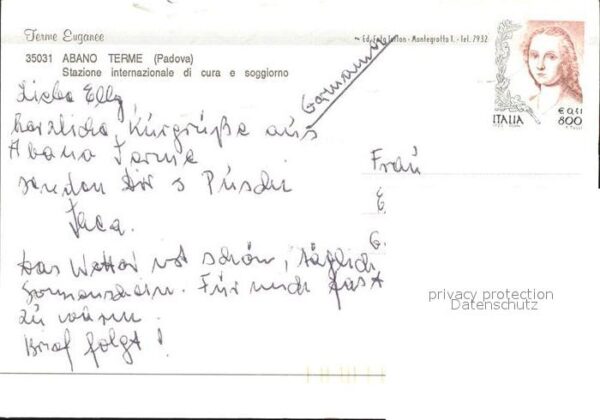 Terme Euganee
Ed. Foto Lutton - Montegrotto T. - Tel. 7932
35031 ABANO TERME (Padova)
Stazione internazionale di cura e soggiorno
Germania
Liebe Elly
herzliche Kurgrüße aus
Abano Terme
senden Dir
Das Wetter ist schön, täglich
Sonnenschein. Für mich fast
zu warm.
Brief folgt!
Frau
E
G
ITALIA
€ 0,41
800
privacy protection
Datenschutz